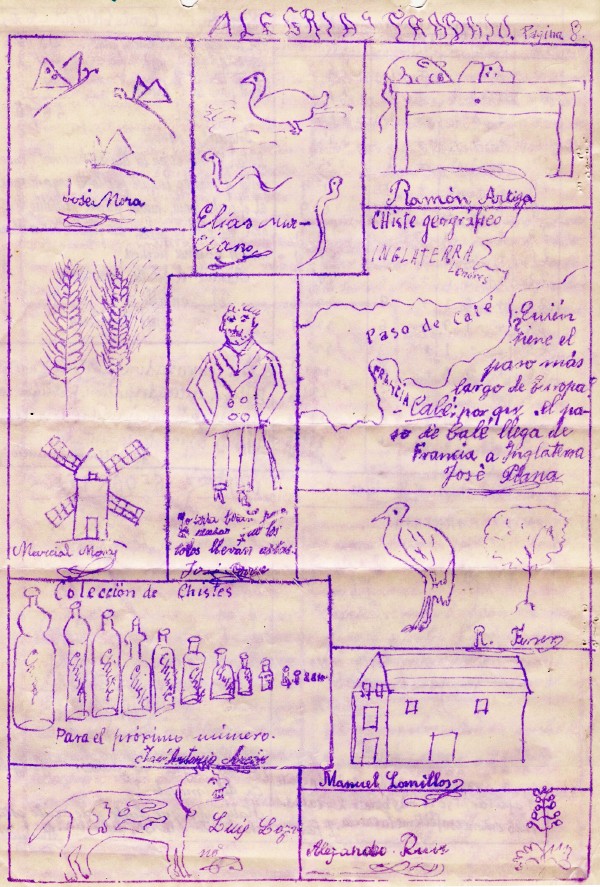 ALEGRIA Y TRABAJO. Página 8.
José Mora
Elías Mur-
ciano
Ramón Artiga
Chiste geográfico
INGLATERRA
Londres
Paso de Calé
FRANCIA
¿Quién
tiene el
paso más
largo de Europa?
- Calé; por qu. el pa-
so de Calé llega de
Francia a Inglaterra
José Plana
Marcial Mony
los
toros llevan astas.
José
R. Ferrer
Colección de Chistes
Para el próximo número.
José Antonio
Manuel Lomillos
Luis Loza
no
Alejandro Ruiz